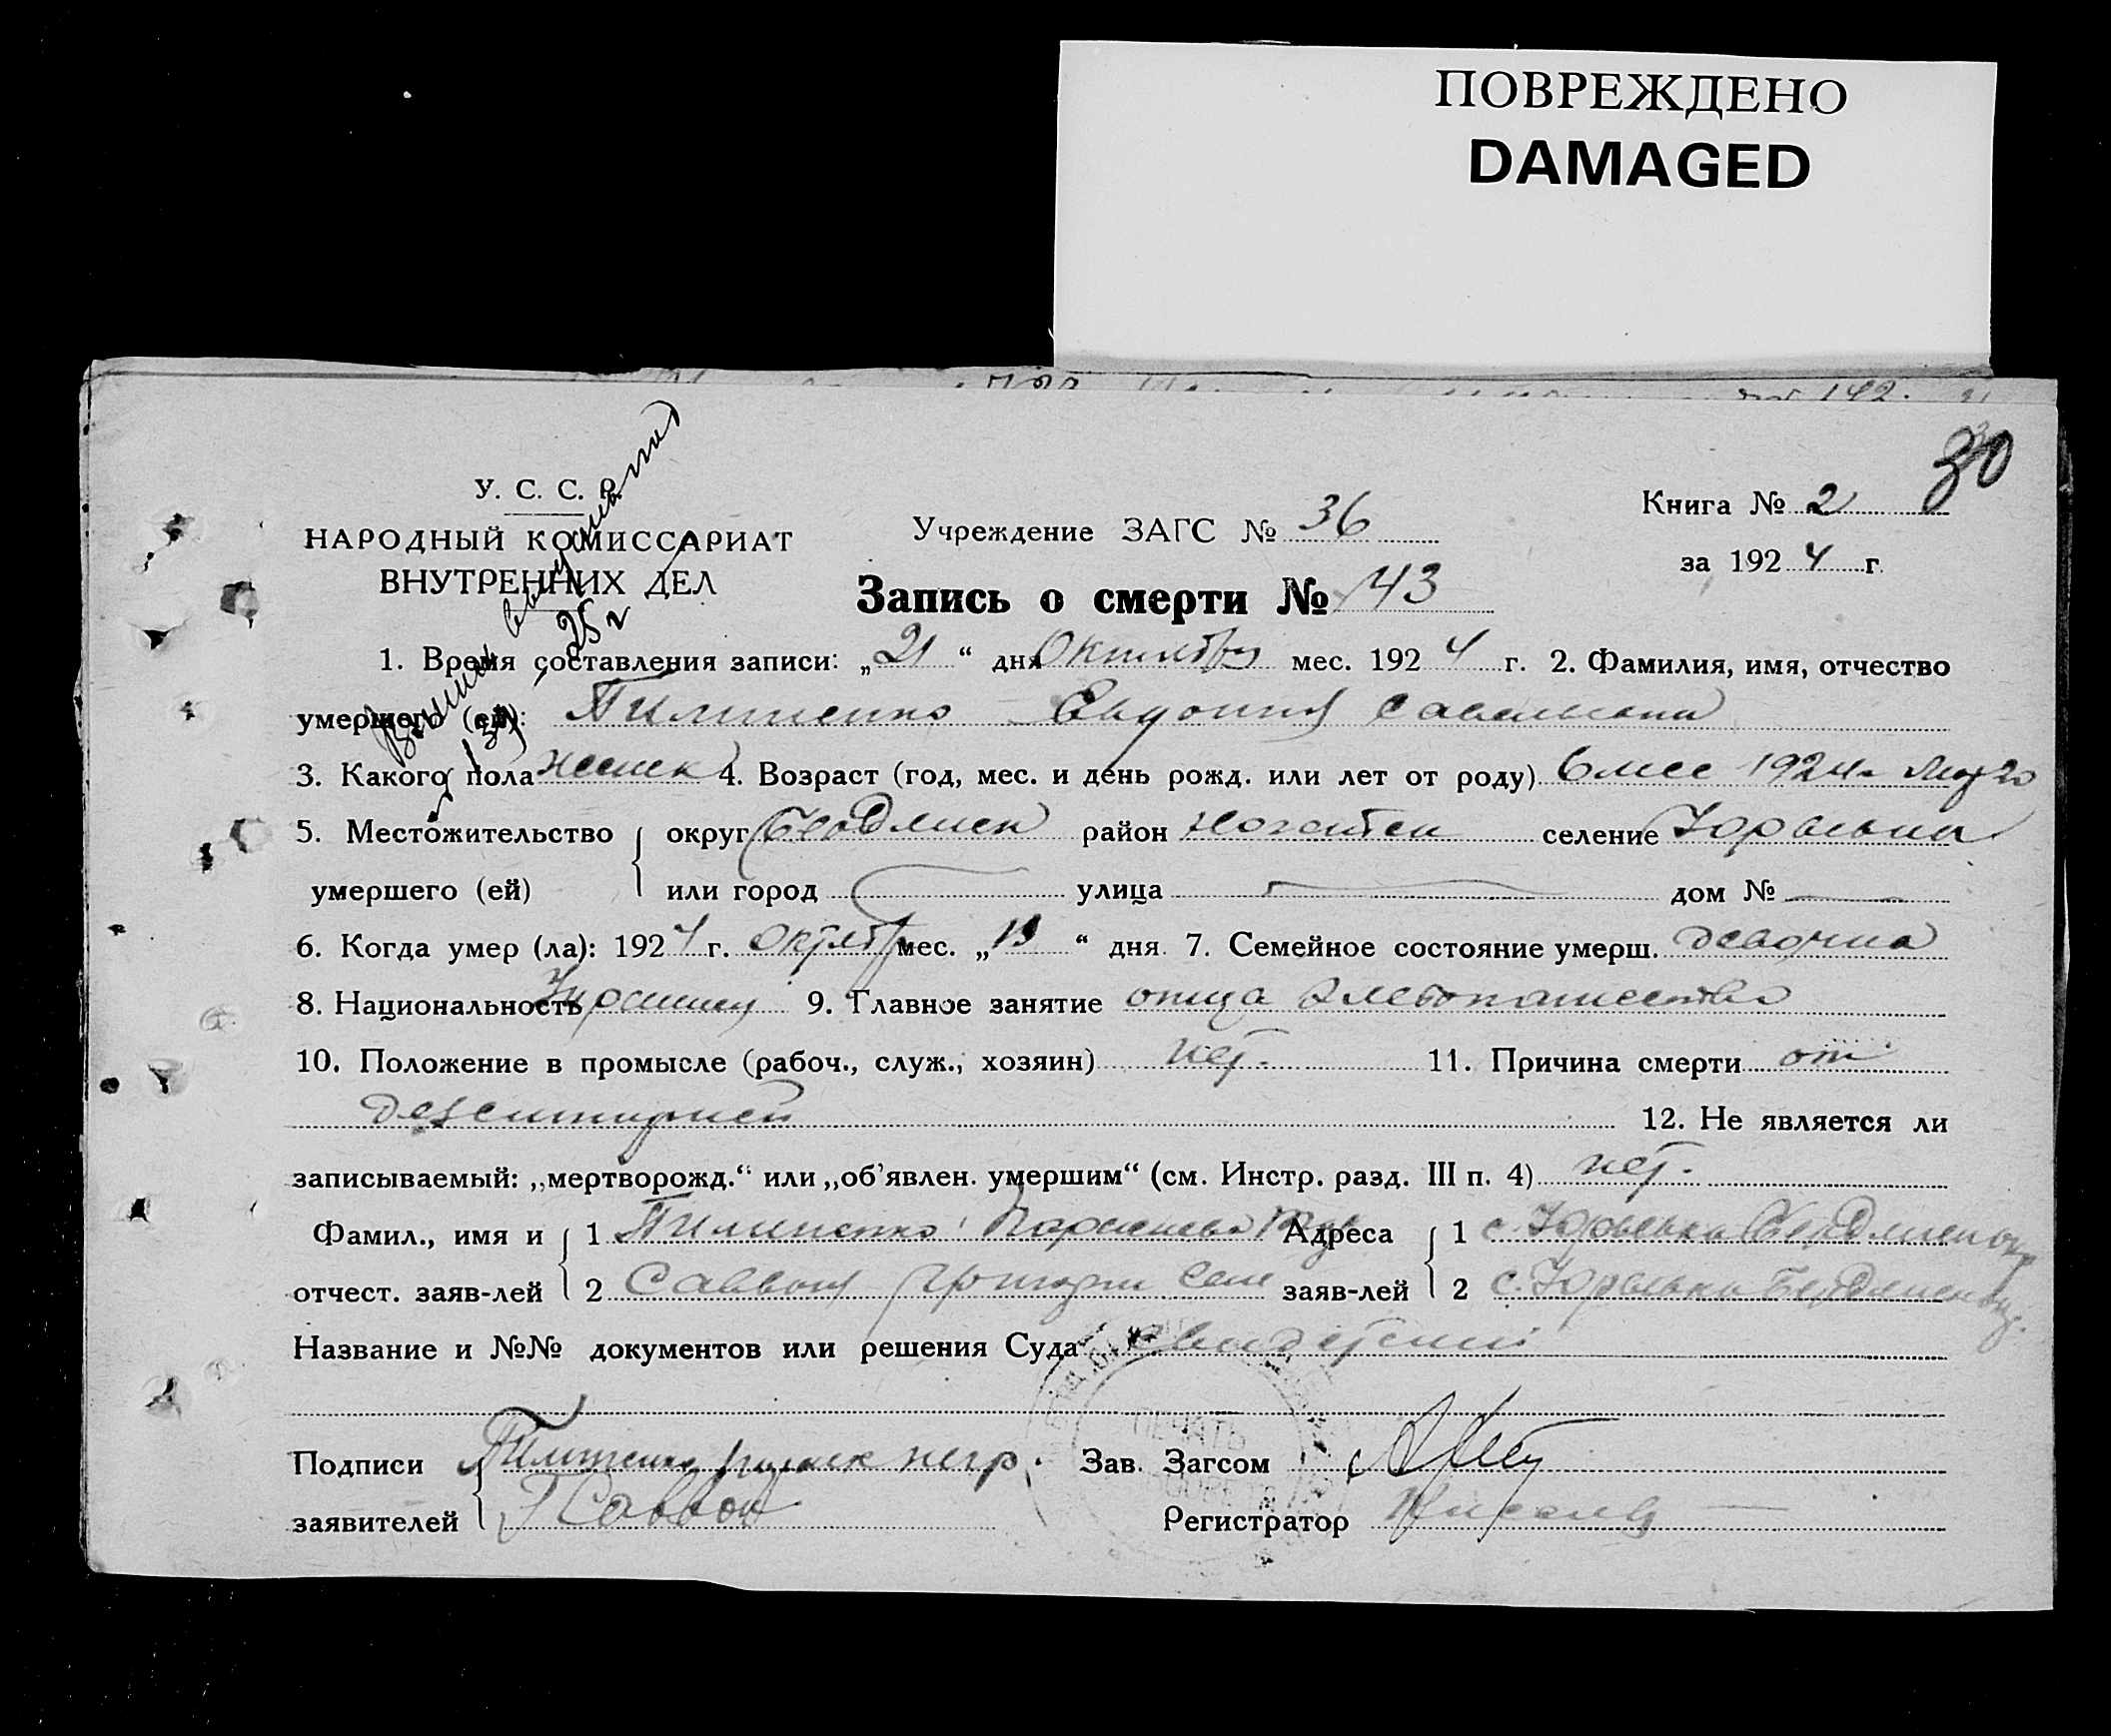 ПОВРЕЖДЕНО
DAMAGED
30
У. С. С. Р.
НАРОДНЫЙ КОМИССАРИАТ
ВНУТРЕННИХ ДЕЛ
Учреждение ЗАГС № 36
Книга № 2
за 1924 г.
Запись о смерти № 43
1. Время составления записи: „21“ дня Октября мес. 1924 г. 2. Фамилия, имя, отчество
умершего (ей): Пилипенко Евдокия
3. Какого пола женск 4. Возраст (год, мес. и день рожд. или лет от роду) 6 мес 1924
5. Местожительство округ Бердянск район Ногайск селение Юрьевка
умершего (ей) или город улица дом №
6. Когда умер (ла): 1924 г. октяб мес. „19“ дня. 7. Семейное состояние умерш. девочка
8. Национальность 9. Главное занятие отца хлебопашество
10. Положение в промысле (рабоч., служ., хозяин) нет. 11. Причина смерти от
дезентирией
12. Не является ли
записываемый: „мертворожд.“ или „об’явлен. умершим“ (см. Инстр. разд. III п. 4) нет.
Фамил., имя и 1 Пилипенко Адреса 1 с. Юрьевка Бердянск окр
отчест. заяв-лей 2 Саввон Григори заяв-лей 2 с. Юрьевка Бердянск окр.
Название и №№ документов или решения Суда
ПЕЧАТЬ
Подписи Пилипенко негр. Зав. Загсом
заявителей Г Саввон Регистратор